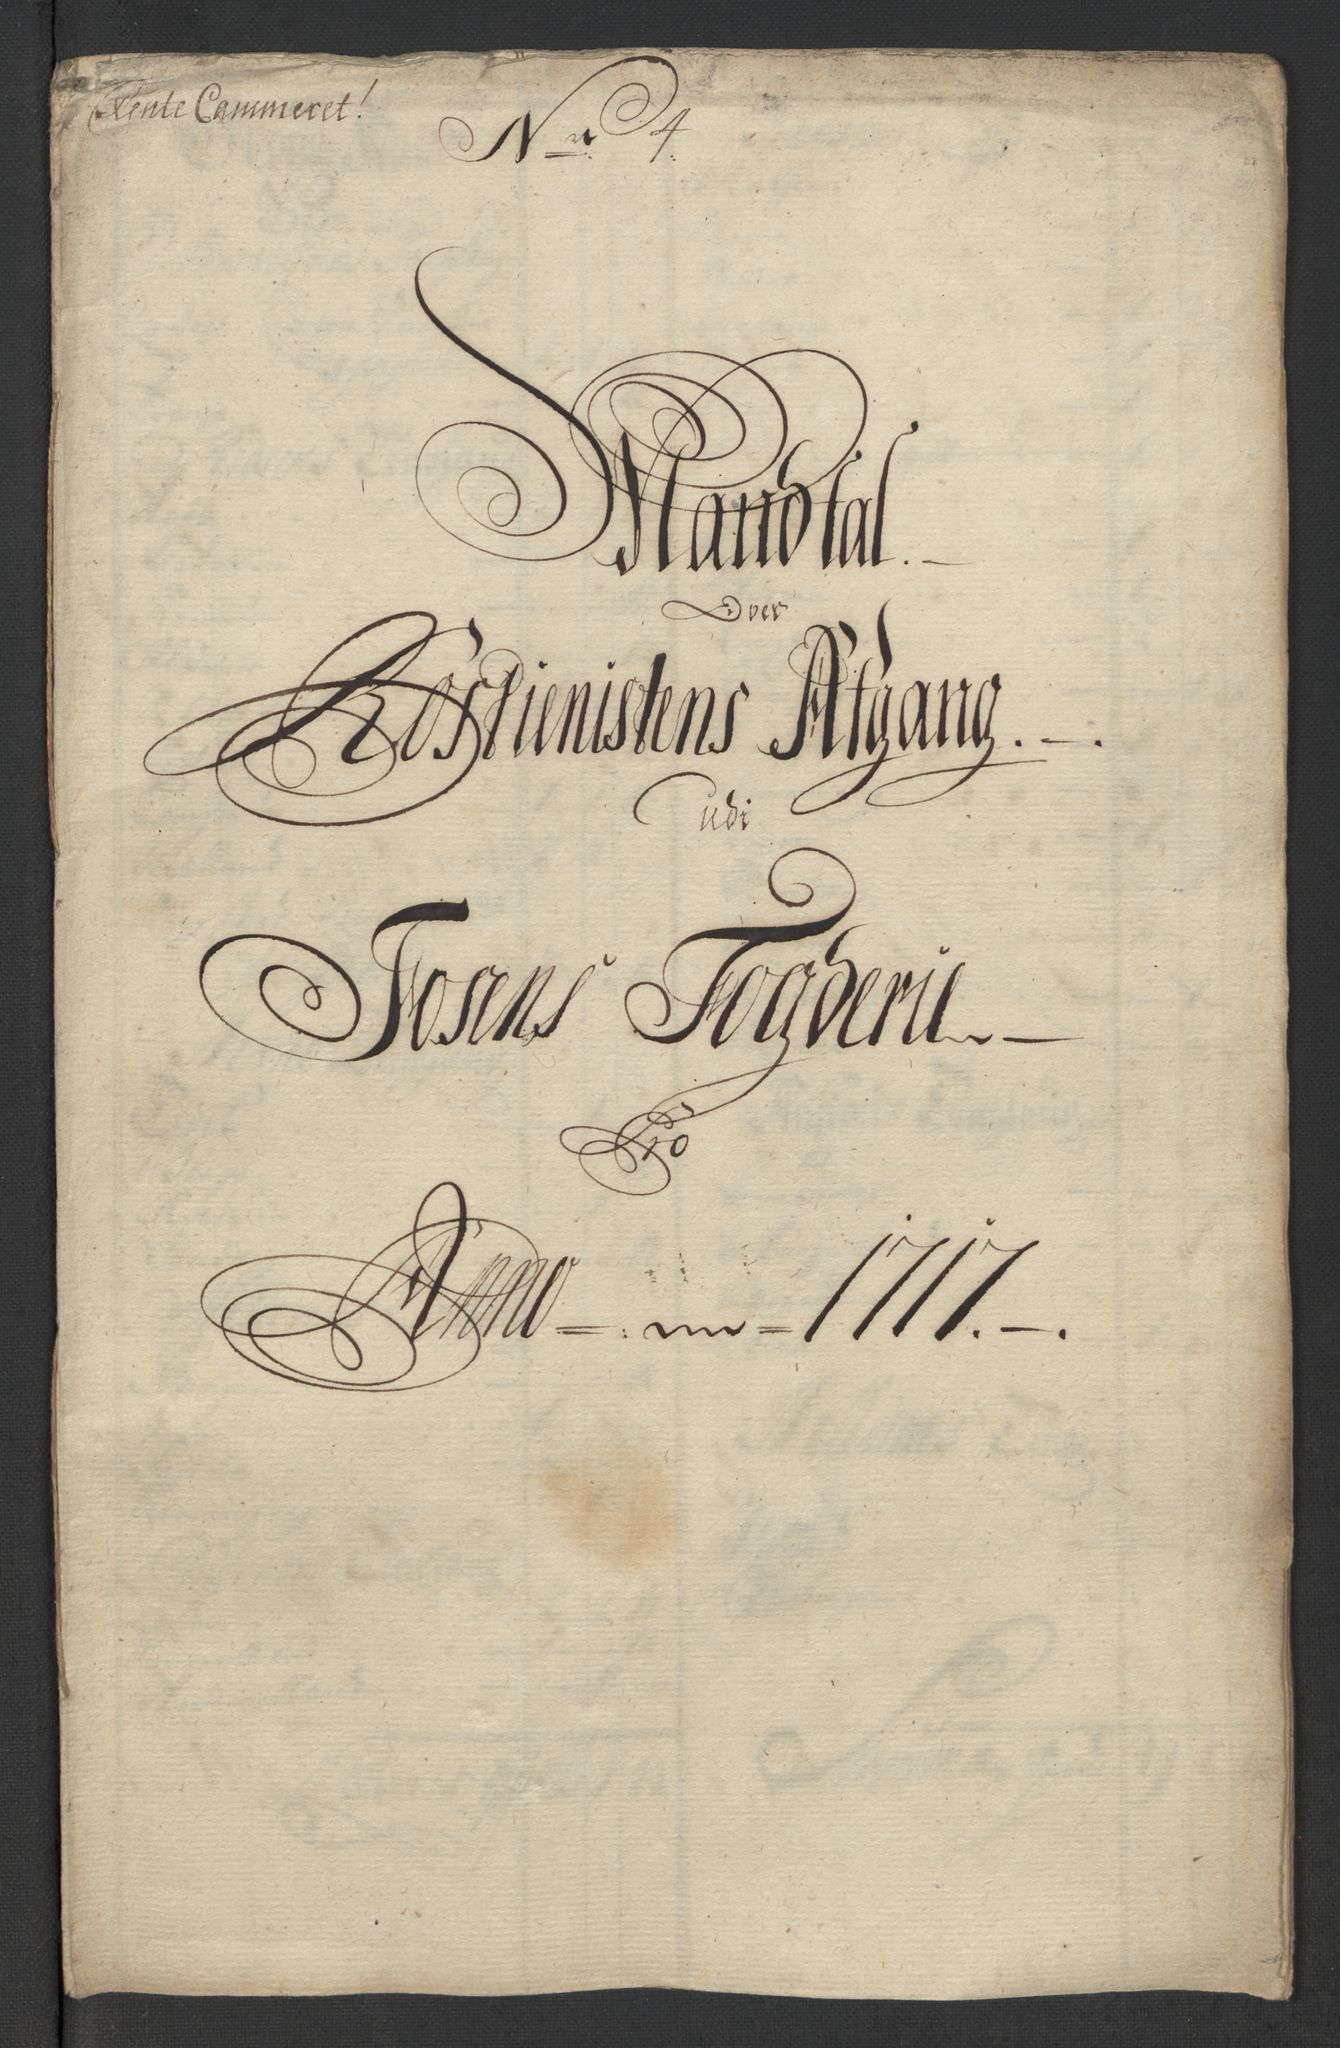 Rente Cammeret!
No 4
Mandtal.
Over
Rostienistens Afgang.
udi
Fosens Fogderie
Pro
Anno 1717.